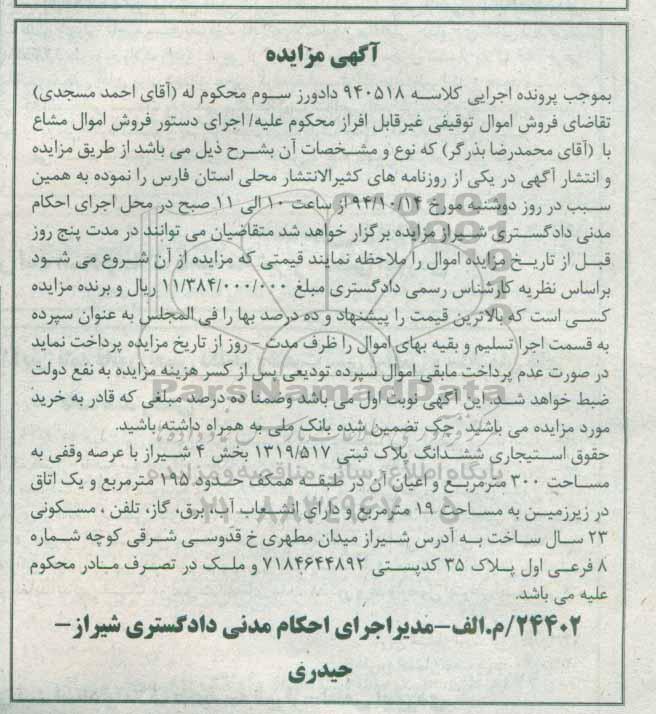 آگهی مزایده
بموجب پرونده اجرایی کلاسه ۹۴۰۵۱۸ دادورز سوم محکوم له (آقای احمد مسجدی)
تقاضای فروش اموال توقیفی غیرقابل افراز محکوم علیه/ اجرای دستور فروش اموال مشاع
با (آقای محمدرضا بذرگر) که نوع و مشخصات آن بشرح ذیل می باشد از طریق مزایده
و انتشار آگهی در یکی از روزنامه های کثیرالانتشار محلی استان فارس را نموده به همین
سبب در روز دوشنبه مورخ ۹۴/۱۰/۱۴ از ساعت ۱۰ الی ۱۱ صبح در محل اجرای احکام
مدنی دادگستری شیراز مزایده برگزار خواهد شد متقاضیان می توانند در مدت پنج روز
قبل از تاریخ مزایده اموال را ملاحظه نمایند قیمتی که مزایده از آن شروع می شود
براساس نظریه کارشناس رسمی دادگستری مبلغ ۱۱/۳۸۴/۰۰۰/۰۰۰ ریال و برنده مزایده
کسی است که بالاترین قیمت را پیشنهاد و ده درصد بها را فی المجلس به عنوان سپرده
به قسمت اجرا تسلیم و بقیه بهای اموال را ظرف مدت - روز از تاریخ مزایده پرداخت نماید
در صورت عدم پرداخت مابقی اموال سپرده تودیعی پس از کسر هزینه مزایده به نفع دولت
ضبط خواهد شد. این آگهی نوبت اول می باشد وضمنا ده درصد مبلغی که قادر به خرید
مورد مزایده می باشید ، چک تضمین شده بانک ملی به همراه داشته باشید.
حقوق استیجاری ششدانگ پلاک ثبتی ۱۳۱۹/۵۱۷ بخش ۴ شیراز با عرصه وقفی به
مساحت ۳۰۰ مترمربع و اعیان آن در طبقه همکف حدود ۱۹۵ مترمربع و یک اتاق
در زیرزمین به مساحت ۱۹ مترمربع و دارای انشعاب آب، برق، گاز، تلفن ، مسکونی
۲۳ سال ساخت به آدرس شیراز میدان مطهری خ قدوسی شرقی کوچه شماره
۸ فرعی اول پلاک ۳۵ کدپستی ۷۱۸۴۶۴۴۸۹۲ و ملک در تصرف مادر محکوم
علیه می باشد.
۲۴۴۰۲/م.الف-مدیراجرای احکام مدنی دادگستری شیراز-
حیدری
ParsNamadData
پایگاه اطلاع رسانی مناقصه و مزایده